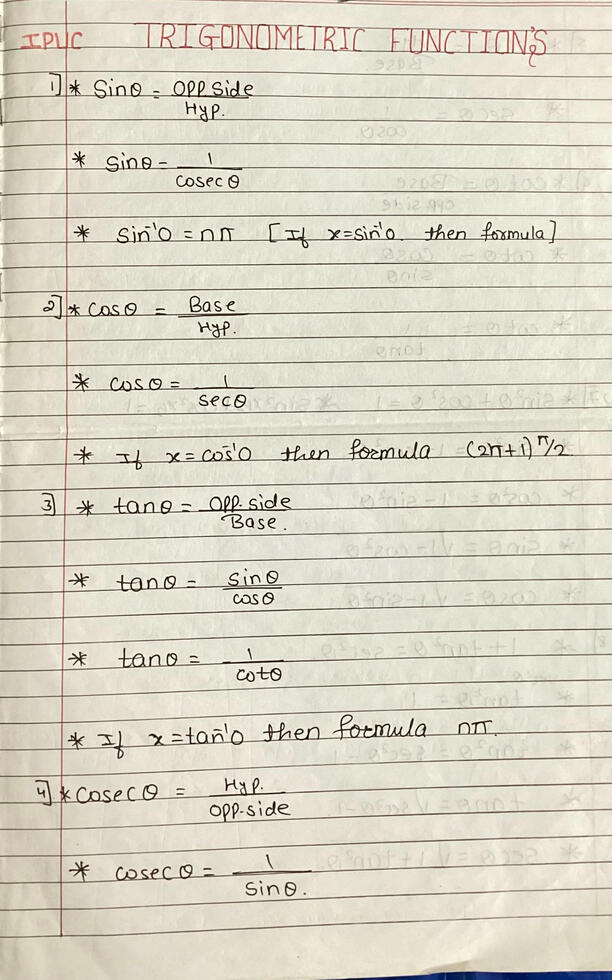 IPUC TRIGONOMETRIC FUNCTION'S
1] * Sinθ = OPP. Side / Hyp.
* Sinθ = 1 / cosec θ
* Sin⁻¹0 = nπ [If x=sin⁻¹0 then formula]
2] * cos θ = Base / Hyp.
* cos θ = 1 / sec θ
* If x = cos⁻¹0 then formula (2n+1) π/2
3] * tanθ = OPP. side / Base.
* tanθ = Sinθ / cosθ
* tanθ = 1 / cotθ
* If x = tan⁻¹0 then formula nπ.
4] * Cosec θ = Hyp. / OPP. side
* cosec θ = 1 / Sinθ.